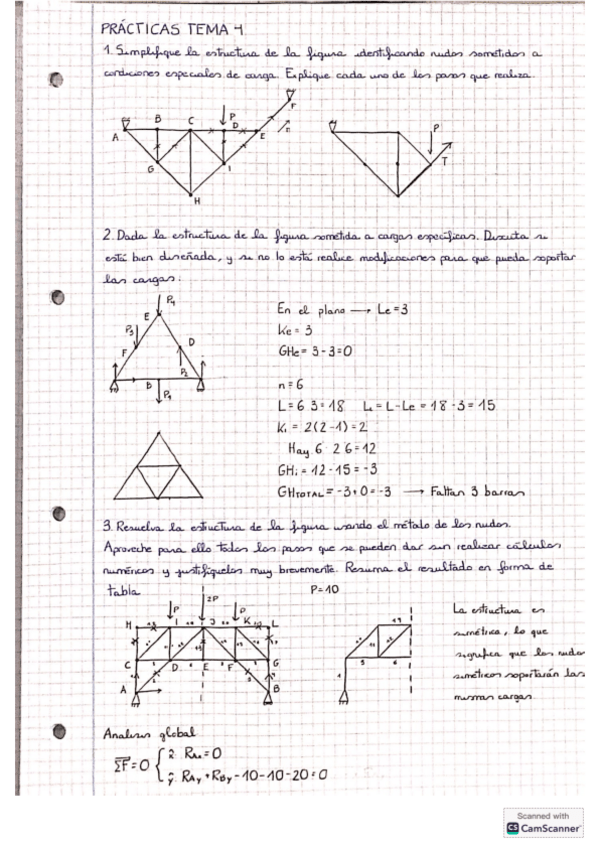 PRÁCTICAS TEMA 4
1. Simplifique la estructura de la figura identificando nudos sometidos a
condiciones especiales de carga. Explique cada uno de los pasos que realiza.
A
B
C
P
D
E
F
G
I
H
P
T
2. Dada la estructura de la figura sometida a cargas específicas. Discuta si
está bien diseñada, y si no lo está realice modificaciones para que pueda soportar
las cargas:
P4
E
P3
F
D
P2
B
En el plano → Le = 3
Ke = 3
GHe = 3 - 3 = 0
n = 6
L = 6·3 = 18
Li = L - Le = 18 - 3 = 15
Ki = 2(2-1) = 2
Hay 6·2·6 = 12
GHi = 12 - 15 = -3
GHTOTAL = -3 + 0 = -3 → Faltan 3 barras
3. Resuelva la estructura de la figura usando el método de los nudos.
Aproveche para ello todos los pasos que se pueden dar sin realizar cálculos
numéricos y justifíquelos muy brevemente. Resuma el resultado en forma de
tabla
P=10
P
2P
P
H
I
J
K
L
C
D
E
F
G
A
B
La estructura es
simétrica, lo que
significa que los nudos
simétricos soportarán las
mismas cargas.
Analisis global
ΣF = 0
RAx = 0
RAy + RBy - 10 - 10 - 20 = 0
Scanned with
CS CamScanner